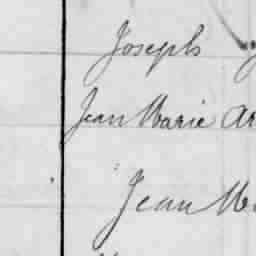 Joseph
Jean Marie Ar
Jean M